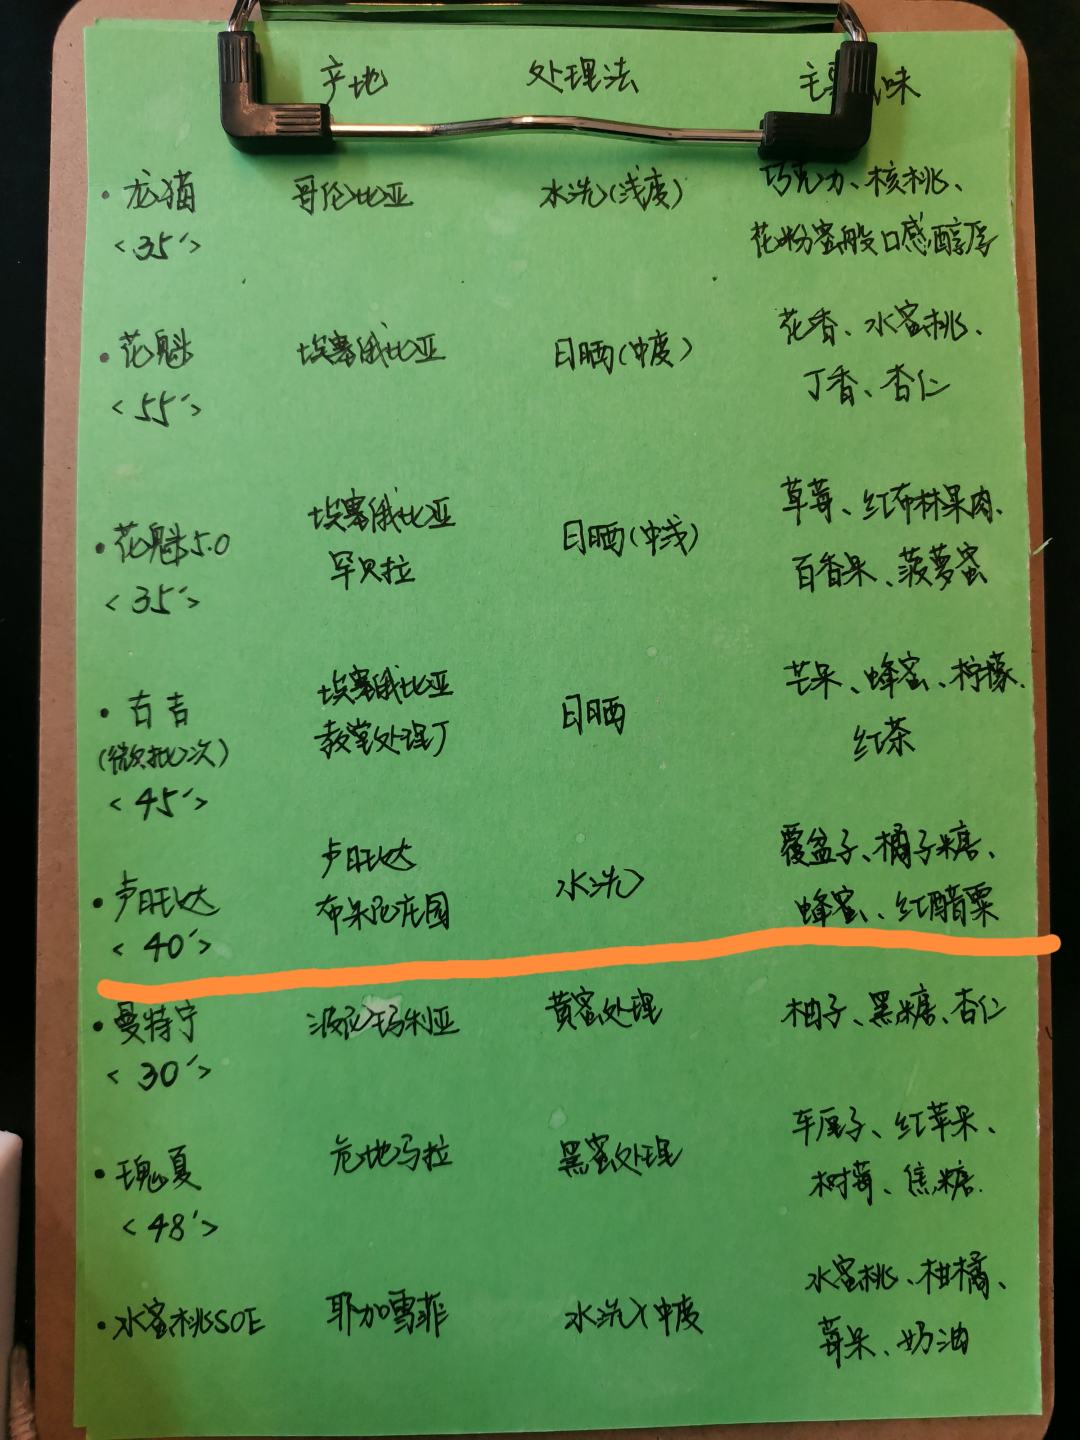 产地 处理法 主要风味
·龙猫 哥伦比亚 水洗(浅度) 巧克力、核桃、
<35′> 花粉蜜般口感醇厚
·花魁 埃塞俄比亚 日晒(中度) 花香、水蜜桃、
<55′> 丁香、杏仁
·花魁5.0 埃塞俄比亚 日晒(中浅) 草莓、红布林果肉、
<35′> 罕贝拉 百香果、菠萝蜜
·古吉 埃塞俄比亚 日晒 芒果、蜂蜜、柠檬、
(微批次) 教堂处理厂 红茶
<45′>
·卢旺达 卢旺达 水洗 覆盆子、橘子糖、
<40′> 布果尼庄园 蜂蜜、红醋栗
·曼特宁 波尔玛利亚 黄蜜处理 柚子、黑糖、杏仁
<30′>
·瑰夏 危地马拉 黑蜜处理 车厘子、红苹果、
<48′> 树莓、焦糖
·水蜜桃SOE 耶加雪菲 水洗中度 水蜜桃、柑橘、
莓果、奶油